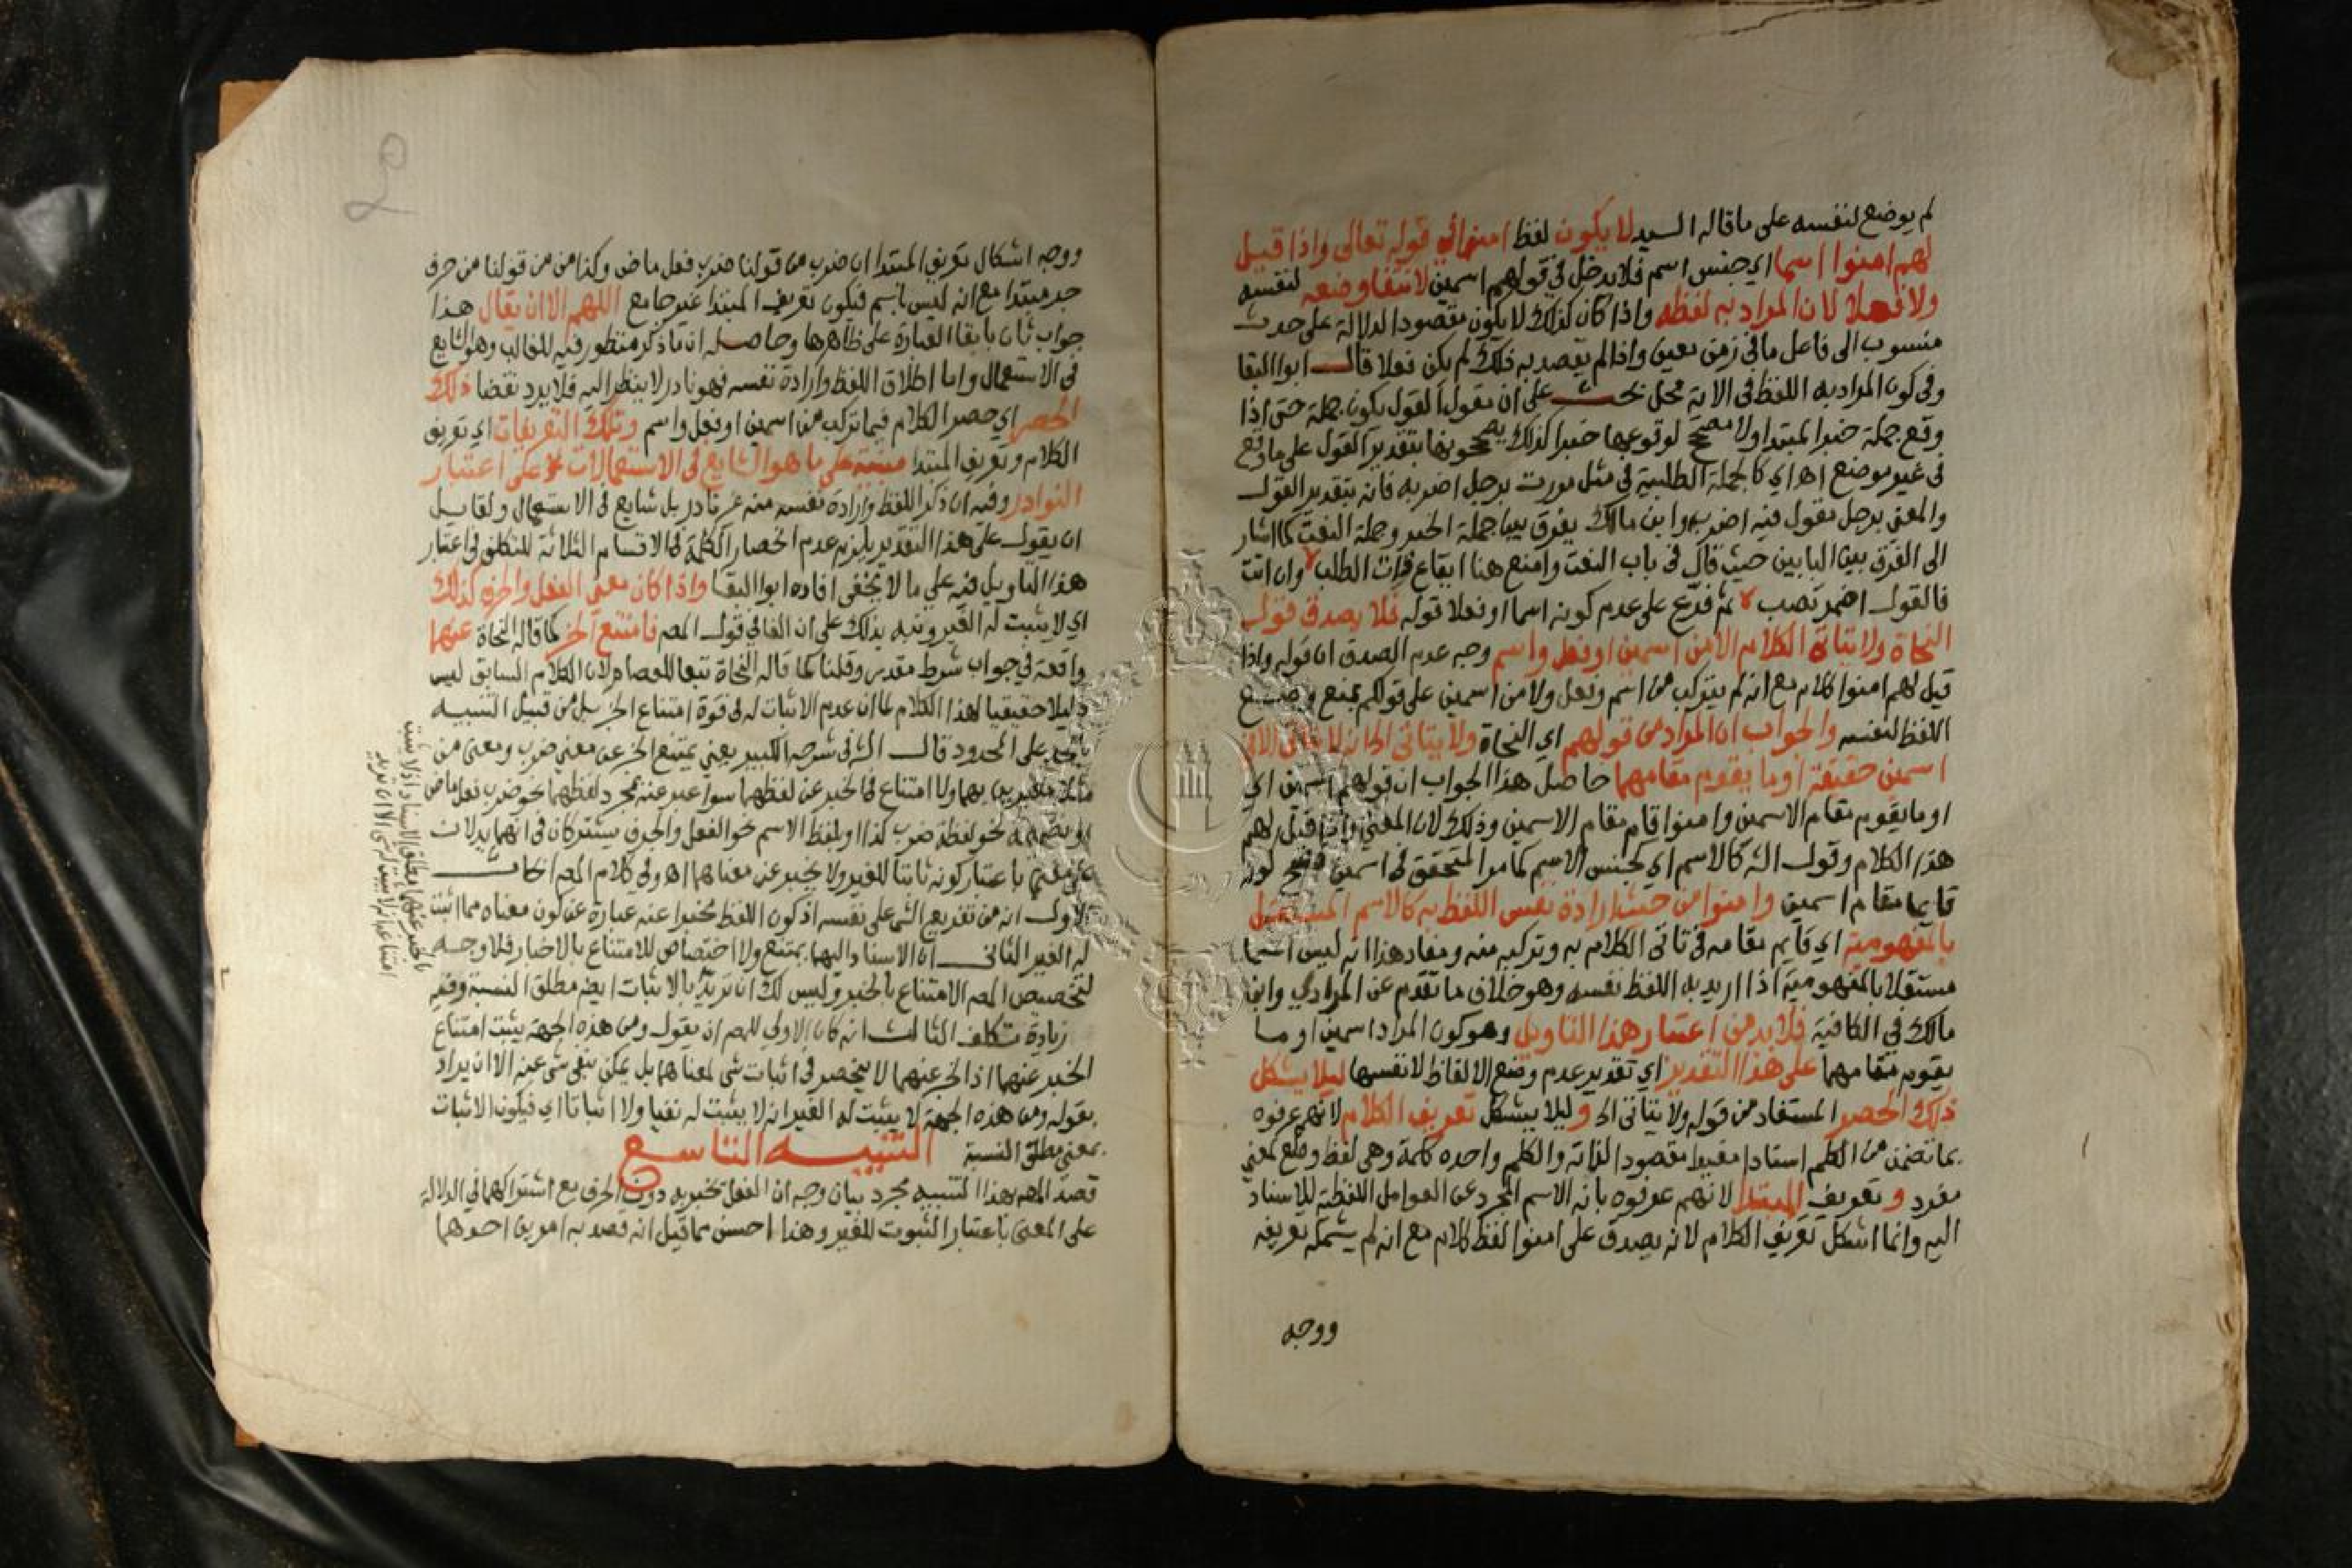 لم يوضع لنفسه على ما قاله السيد لا يكون لفظ امنوا في قوله تعالى واذا قيل
لهم امنوا اسما اي جنس اسم فلا يدخل في قولهم اسمين لانتفا وضعه لنفسه
ولا فعلا لان المراد به لفظه واذا كان كذلك لا يكون مقصود الدلالة على حدث
منسوب الى فاعل ما في زمن معين واذا لم يقصد به ذلك لم يكن فعلا قال ابو البقا
وفي كون المراد به اللفظ في الاية محل بحث على ان مقول القول يكون جملة حتى اذا
وقع جملة خبرا لمبتدا ولا مصحح لوقوعها خبرا كذلك يصححونها بتقدير القول على ما وقع
في غير موضع اه اي كالجملة الطلبية في مثل مررت برجل اضربه فانه بتقدير القول
والمعنى برجل مقول فيه اضربه وابن مالك يفرق بين جملة الخبر وجملة النعت كما اشار
الى الفرق بين البابين حيث قال في باب النعت وامنع هنا ايقاع ذات الطلب وان اتت
فالقول اضمر تصب ثم فرع على عدم كونه اسما او فعلا قوله فلا يصدق قول
النحاة ولا يتاتى الكلام الا من اسمين او فعل واسم وجه عدم الصدق ان قوله واذا
قيل لهم امنوا كلام مع انه لم يتركب من اسم وفعل ولا من اسمين على قولكم بمنع وضع
اللفظ لنفسه والجواب ان المراد من قولهم اي النحاة ولا يتاتى الكلام الا من
اسمين حقيقة او ما يقوم مقامهما حاصل هذا الجواب ان قولهم اسمين اي
او ما يقوم مقام الاسمين وامنوا قام مقام الاسمين وذلك لان المعنى واذا قيل لهم
هذا الكلام وقول الش كالاسم اي كجنس الاسم كما مر المتحقق في اسمين فصح كونه
قايما مقام اسمين وامنوا من حيث ارادة نفس اللفظ به كالاسم المستقل
بالمفهومية اي قايم مقامه في تاتي الكلام به وتركبه منه ومفاد هذا انه ليس اسما
مستقلا بالمفهومية اذا اريد به اللفظ نفسه وهو خلاف ما تقدم عن المرادي وابن
مالك في الكافية فلا بد من اعتبار هذا التاويل وهو كون المراد اسمين او ما
يقوم مقامهما على هذا التقدير اي تقدير عدم وضع الالفاظ لانفسها ليلا يشكل
ذلك الحصر المستفاد من قوله ولا يتاتى الخ وليلا يشكل تعريف الكلام لانهم عرفوه
بما تضمن من الكلم اسنادا مفيدا مقصودا لذاته والكلم واحده كلمة وهي لفظ وضع لمعنى
مفرد وتعريف المبتدا لانهم عرفوه بانه الاسم المجرد عن العوامل اللفظية للاسناد
اليه وانما اشكل تعريف الكلام لانه يصدق على امنوا لفظ كلام مع انه لم يشمله تعريفه
ووجه
ووجه اشكال تعريف المبتدا ان ضرب من قولنا ضرب فعل ماض وكذا من من قولنا من حرف
جر مبتدا مع انه ليس باسم فيكون تعريف المبتدا غير جامع اللهم الا ان يقال هذا
جواب ثان بابقا العبارة على ظاهرها وحاصله ان ما ذكر منظور فيه للغالب وهو الشايع
في الاستعمال واما اطلاق اللفظ وارادة نفسه فهو نادر لا ينظر اليه فلا يرد نقضا ذلك
الحصر اي حصر الكلام فيما تركب من اسمين او فعل واسم وتلك التعريفات اي تعريف
الكلام وتعريف المبتدا مبنية على ما هو الشايع في الاستعمالات لا على اعتبار
النوادر وفيه ان ذكر اللفظ وارادة نفسه منه غير نادر بل شايع في الاستعمال ولقايل
ان يقول على هذا التقدير يلزم عدم انحصار الكلمة في الاقسام الثلاثة للتكلف في اعتبار
هذا التاويل فيه على ما لا يخفى افاده ابو البقا واذا كان معنى الفعل والحرف كذلك
اي لا يثبت له الغير ونبه بذلك على ان الفا في قول المص فامتنع الخبر كما قاله النحاة عنهما
واقعة في جواب شرط مقدر وقلنا كما قاله النحاة تبعا للعصام لان الكلام السابق ليس
دليلا حقيقيا لهذا الكلام لما ان عدم الاثبات له في قوة امتناع الخبر بل من قبيل التنبيه
بالحد على المحدود قال الش في شرحه الكبير يعني يمتنع الخبر عن معنى ضرب ومعنى من
مثلا معبرين بهما ولا امتناع في الخبر عن لفظهما سوا عبر عنه بمجرد لفظهما نحو ضرب فعل ماض
او بضميمة نحو لفظة ضرب كذا او بلفظ الاسم نحو الفعل والحرف يشتركان في انهما يدلان
على معنى باعتبار كونه ثابتا للغير ولا يخبر عن معناهما اه وفي كلام المص ابحاث
الاول انه من تفريع الشي على نفسه اذ كون اللفظ مخبرا عنه عبارة عن كون معناه مما اثبت
له الغير الثاني ان الاسناد اليهما يمتنع ولا اختصاص للامتناع بالاخبار فلا وجه
لتخصيص المص الامتناع بالخبر وليس لك ان تريد بالاثبات ايضا مطلق النسبة وفيه
زيادة تكلف الثالث انه كان الاولى للمص ان يقول ومن هذه الجهة يثبت امتناع
الخبر عنهما اذ الخبر عنهما لا ينحصر في اثبات شي لمعناهما بل يمكن بنفي شي عنه الا ان يراد
بقوله ومن هذه الجهة لا يثبت له الغير انه لا يثبت له نفيا ولا اثباتا اي فيكون الاثبات
بمعنى مطلق النسبة التنبيه التاسع
قصد المص بهذا التنبيه مجرد بيان وجه ان الفعل يخبر به دون الحرف مع اشتراكهما في الدلالة
على المعنى باعتبار الثبوت للغير وهذا احسن مما قيل انه قصد به امرين احدهما
بالخبر عنهما مطلق الاسناد اذ لا يثبت